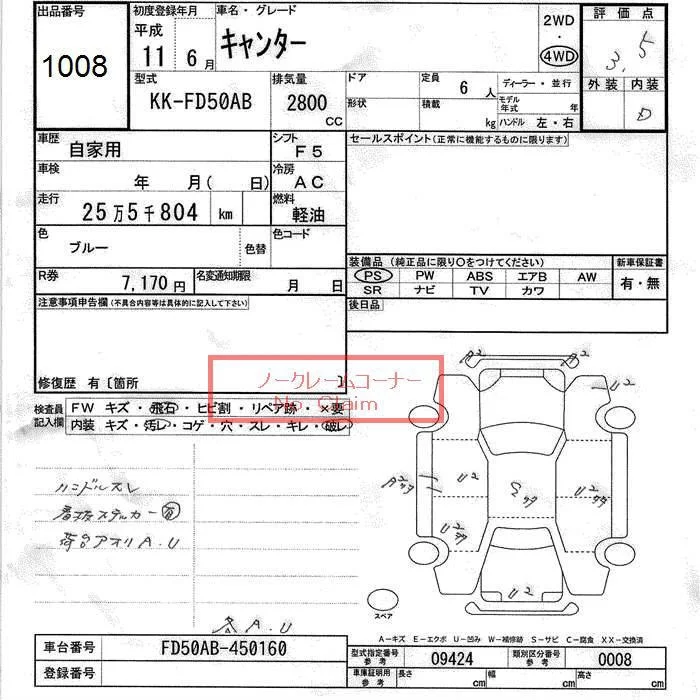 出品番号 初度登録年月 車名・グレード 2WD 評価点
1008 平成 キャンター ・ 3.5
11 6月 4WD 外装 内装
型式 排気量 ドア 定員 6人 ディーラー・並行 D
KK-FD50AB 2800 CC 形状 積載 kg モデル年式 年
ハンドル 左・右
車歴 自家用 シフト F5 セールスポイント(正常に機能するものに限ります)
車検 年 月( 日) 冷房 AC
走行 25万5千804 km 燃料 軽油
色 ブルー 色替 色コード
装備品(純正品に限り○をつけてください) 新車保証書
R券 7,170円 名変通知期限 月 日 PS PW ABS エアB AW 有・無
SR ナビ TV カワ
注意事項申告欄(不具合内容等は具体的に記入して下さい) 後日品
修復歴 有〔箇所 〕
ノークレームコーナー
No. Claim
検査員記入欄 FW キズ・飛石・ヒビ割・リペア跡・×要
内装 キズ・汚レ・コゲ・穴・スレ・キレ・破レ
A2 A2
U2
U2 U2
U2
U2
ハンドルスレ
看板ステッカー有
荷台アオリA.U
A.U
スペア
A-キズ E-エクボ U-凹み W-補修跡 S-サビ C-腐食 XX-交換済
車台番号 FD50AB-450160 型式指定番号 参考 09424 類別区分番号 参考 0008
登録番号 車庫証明用 参考 長さ cm 幅 cm 高さ cm